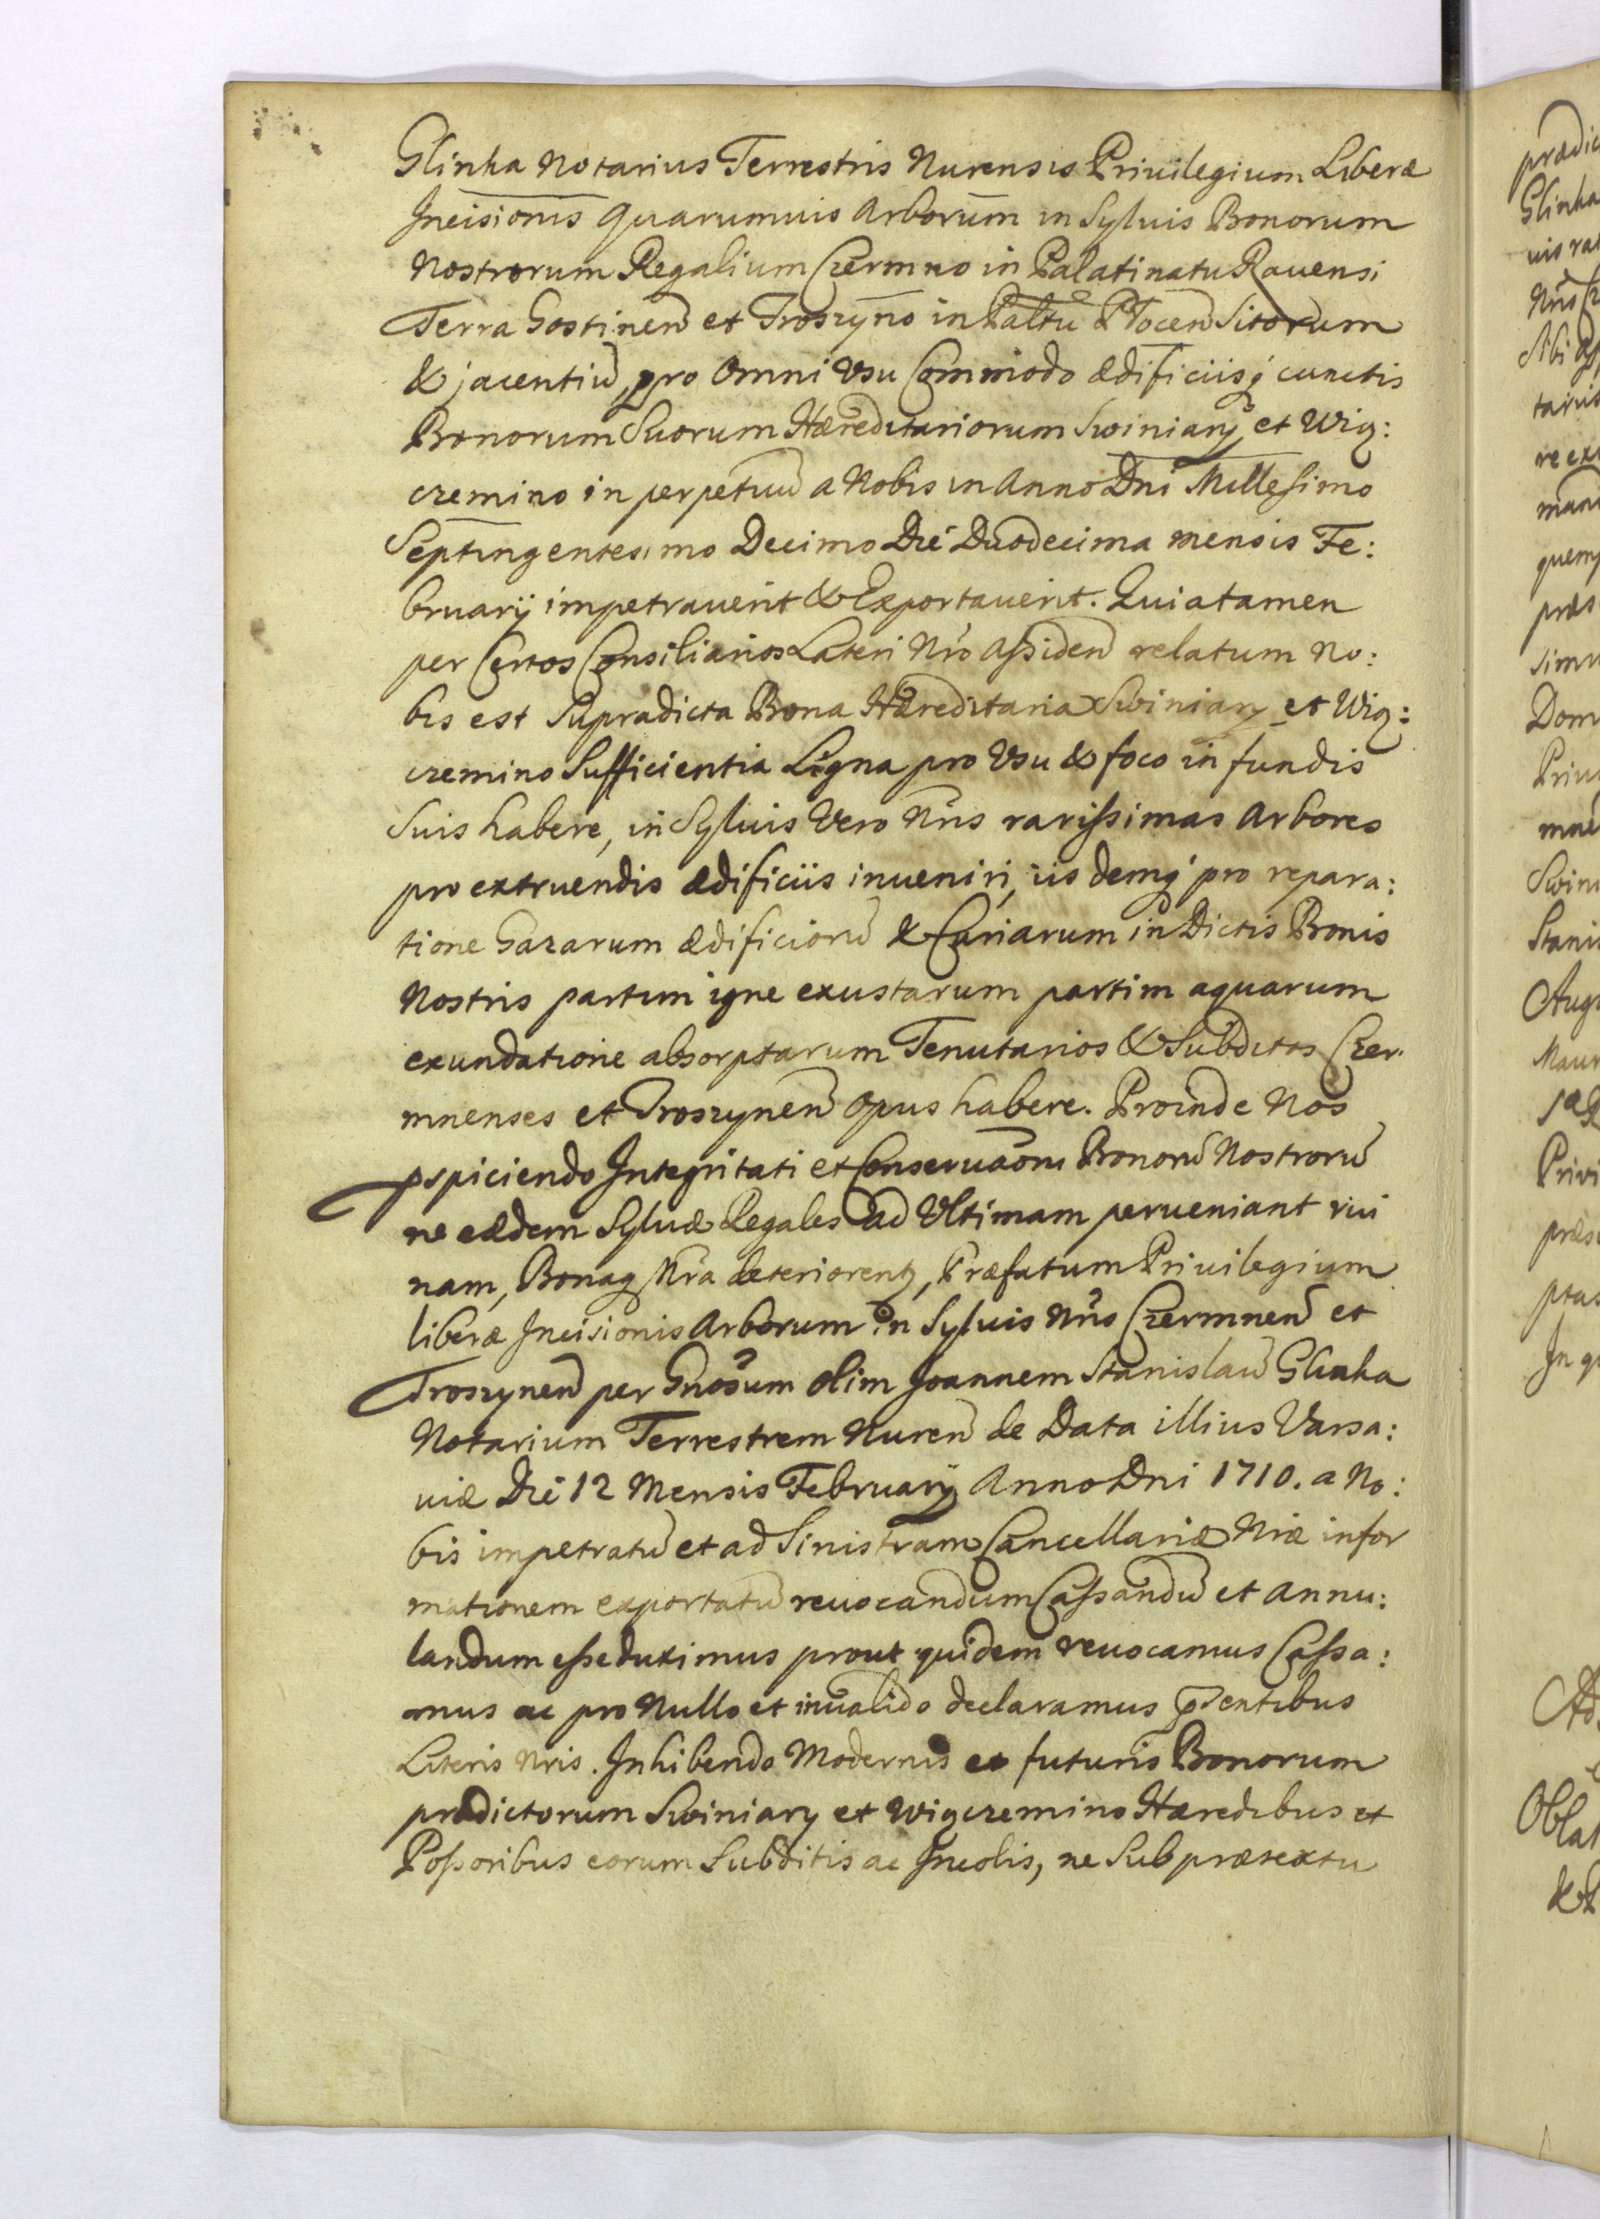 Glinka Notarius Terrestris Nurensis Privilegium Liberæ
Incisionis quarumuis Arborum in Syluis Bonorum
Nostrorum Regalium Czermno in Palatinatu Rauensi
Terra Gostinen et Troszyno in Palttu Plocen Sitorum
& jacentiu, pro omni Vsu Commodo ædificiisq cunctis
Bonorum Suorum Hæreditariorum Swiniary et Wiq:
czemino in perpetuu a Nobis in Anno Dni Millesimo
Septingentesimo Decimo Die Duodecima mensis Fe:
bruarij impetrauerit & Exportauerit. Quia tamen
per Certos Consiliarios Lateri Nro Assiden relatum no:
bis est Supradicta Bona Hæreditaria Swiniary et Wiq:
czemino Sufficientia Ligna pro Vsu & foco in fundis
Suis habere, in Syluis Vero Nris rarissimas Arbores
pro extruendis ædificiis inueniri, iisdemq pro repara:
tione Gazarum ædificioru & Curiarum in Dictis Bonis
Nostris partim igne exustarum partim aquarum
exundatione absorptarum Tenutarios & Subditos Czer:
mnenses et Troszynen opus habere. Proinde Nos
pspiciendo Integritati et Conseruaoni Bonoru Nostroru
ne eædem Syluæ Regales ad Ultimam perueniant rui
nam, Bonaq Nra deteriorentz, Præfatum Privilegium
liberæ Incisionis Arborum in Syluis Nris Czermnen et
Troszynen per Gnosum olim Joannem Stanislau Glinka
Notarium Terrestrem Nuren de Data illius Varsa:
uiæ Die 12 Mensis February Anno Dni 1710. a No:
bis impetratu et ad Sinistram Cancellariæ Nræ infor
mationem exportatu reuocandum Cassandu et annu:
landum esse duximus prout quidem reuocamus Cassa:
mus ac pro Nullo et inualido declaramus psentibus
Literis Nris. Inhibendo Modernis et futuris Bonorum
prædictorum Swiniary et Wiqczemino Hæredibus et
Possoribus eorum Subditis ac Incolis, ne Sub prætextu